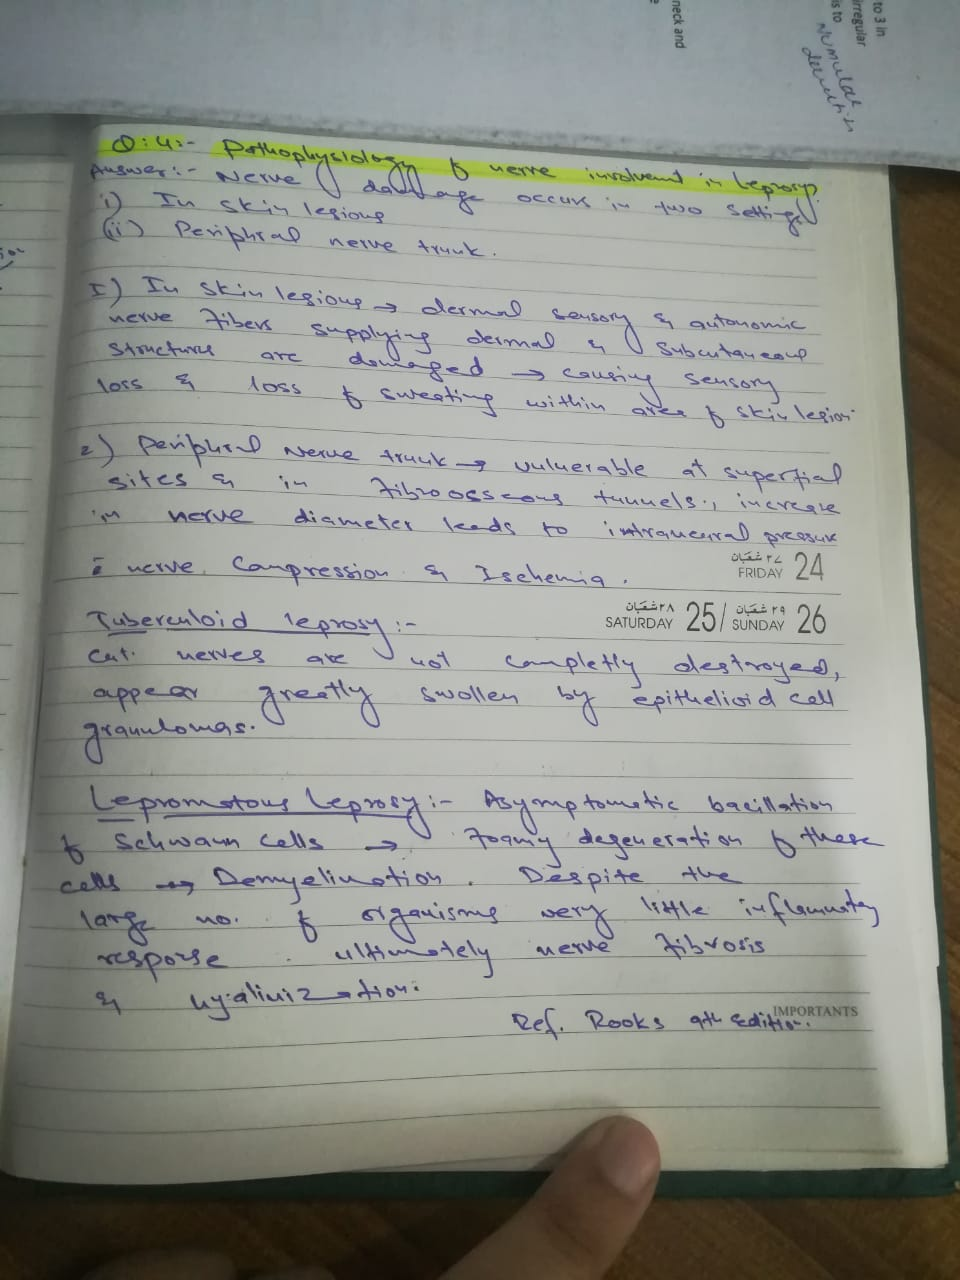 to 3 in
irregular
is to
Numular
neck and
Q:4:- Pathophysiology of nerve involvent in leprosy?
Answer:- Nerve damage occurs in two settings
i) In skin lesions
(ii) Periphral nerve trunk.
I) In skin lesions → dermal sensory & autonomic
nerve fibers supplying dermal & Subcutaneous
structures are damaged → causing sensory
loss & loss of sweating within area of skin lesion.
2) Periphral Nerve trunk → vulnerable at superfial
sites & in fibroosseous tunnels., increase
in nerve diameter leads to intraneural pressure
c̄ nerve Compression & Ischemia.
٢٧ شعبان
FRIDAY 24
٢٨ شعبان
SATURDAY 25/
٢٩ شعبان
SUNDAY 26
Tuberculoid leprosy:-
cut. nerves are not completly destroyed,
appear greatly swollen by epithelioid cell
granulomas.
Lepromatous Leprosy:- Asymptometic bacillation
of Schwann cells → Foamy degeneration of these
cells → Demyelination. Despite the
large no. of organisms very little inflammatory
response. ultimately nerve fibrosis
& hyalinization.
IMPORTANTS
Ref. Rooks 9th Edition.